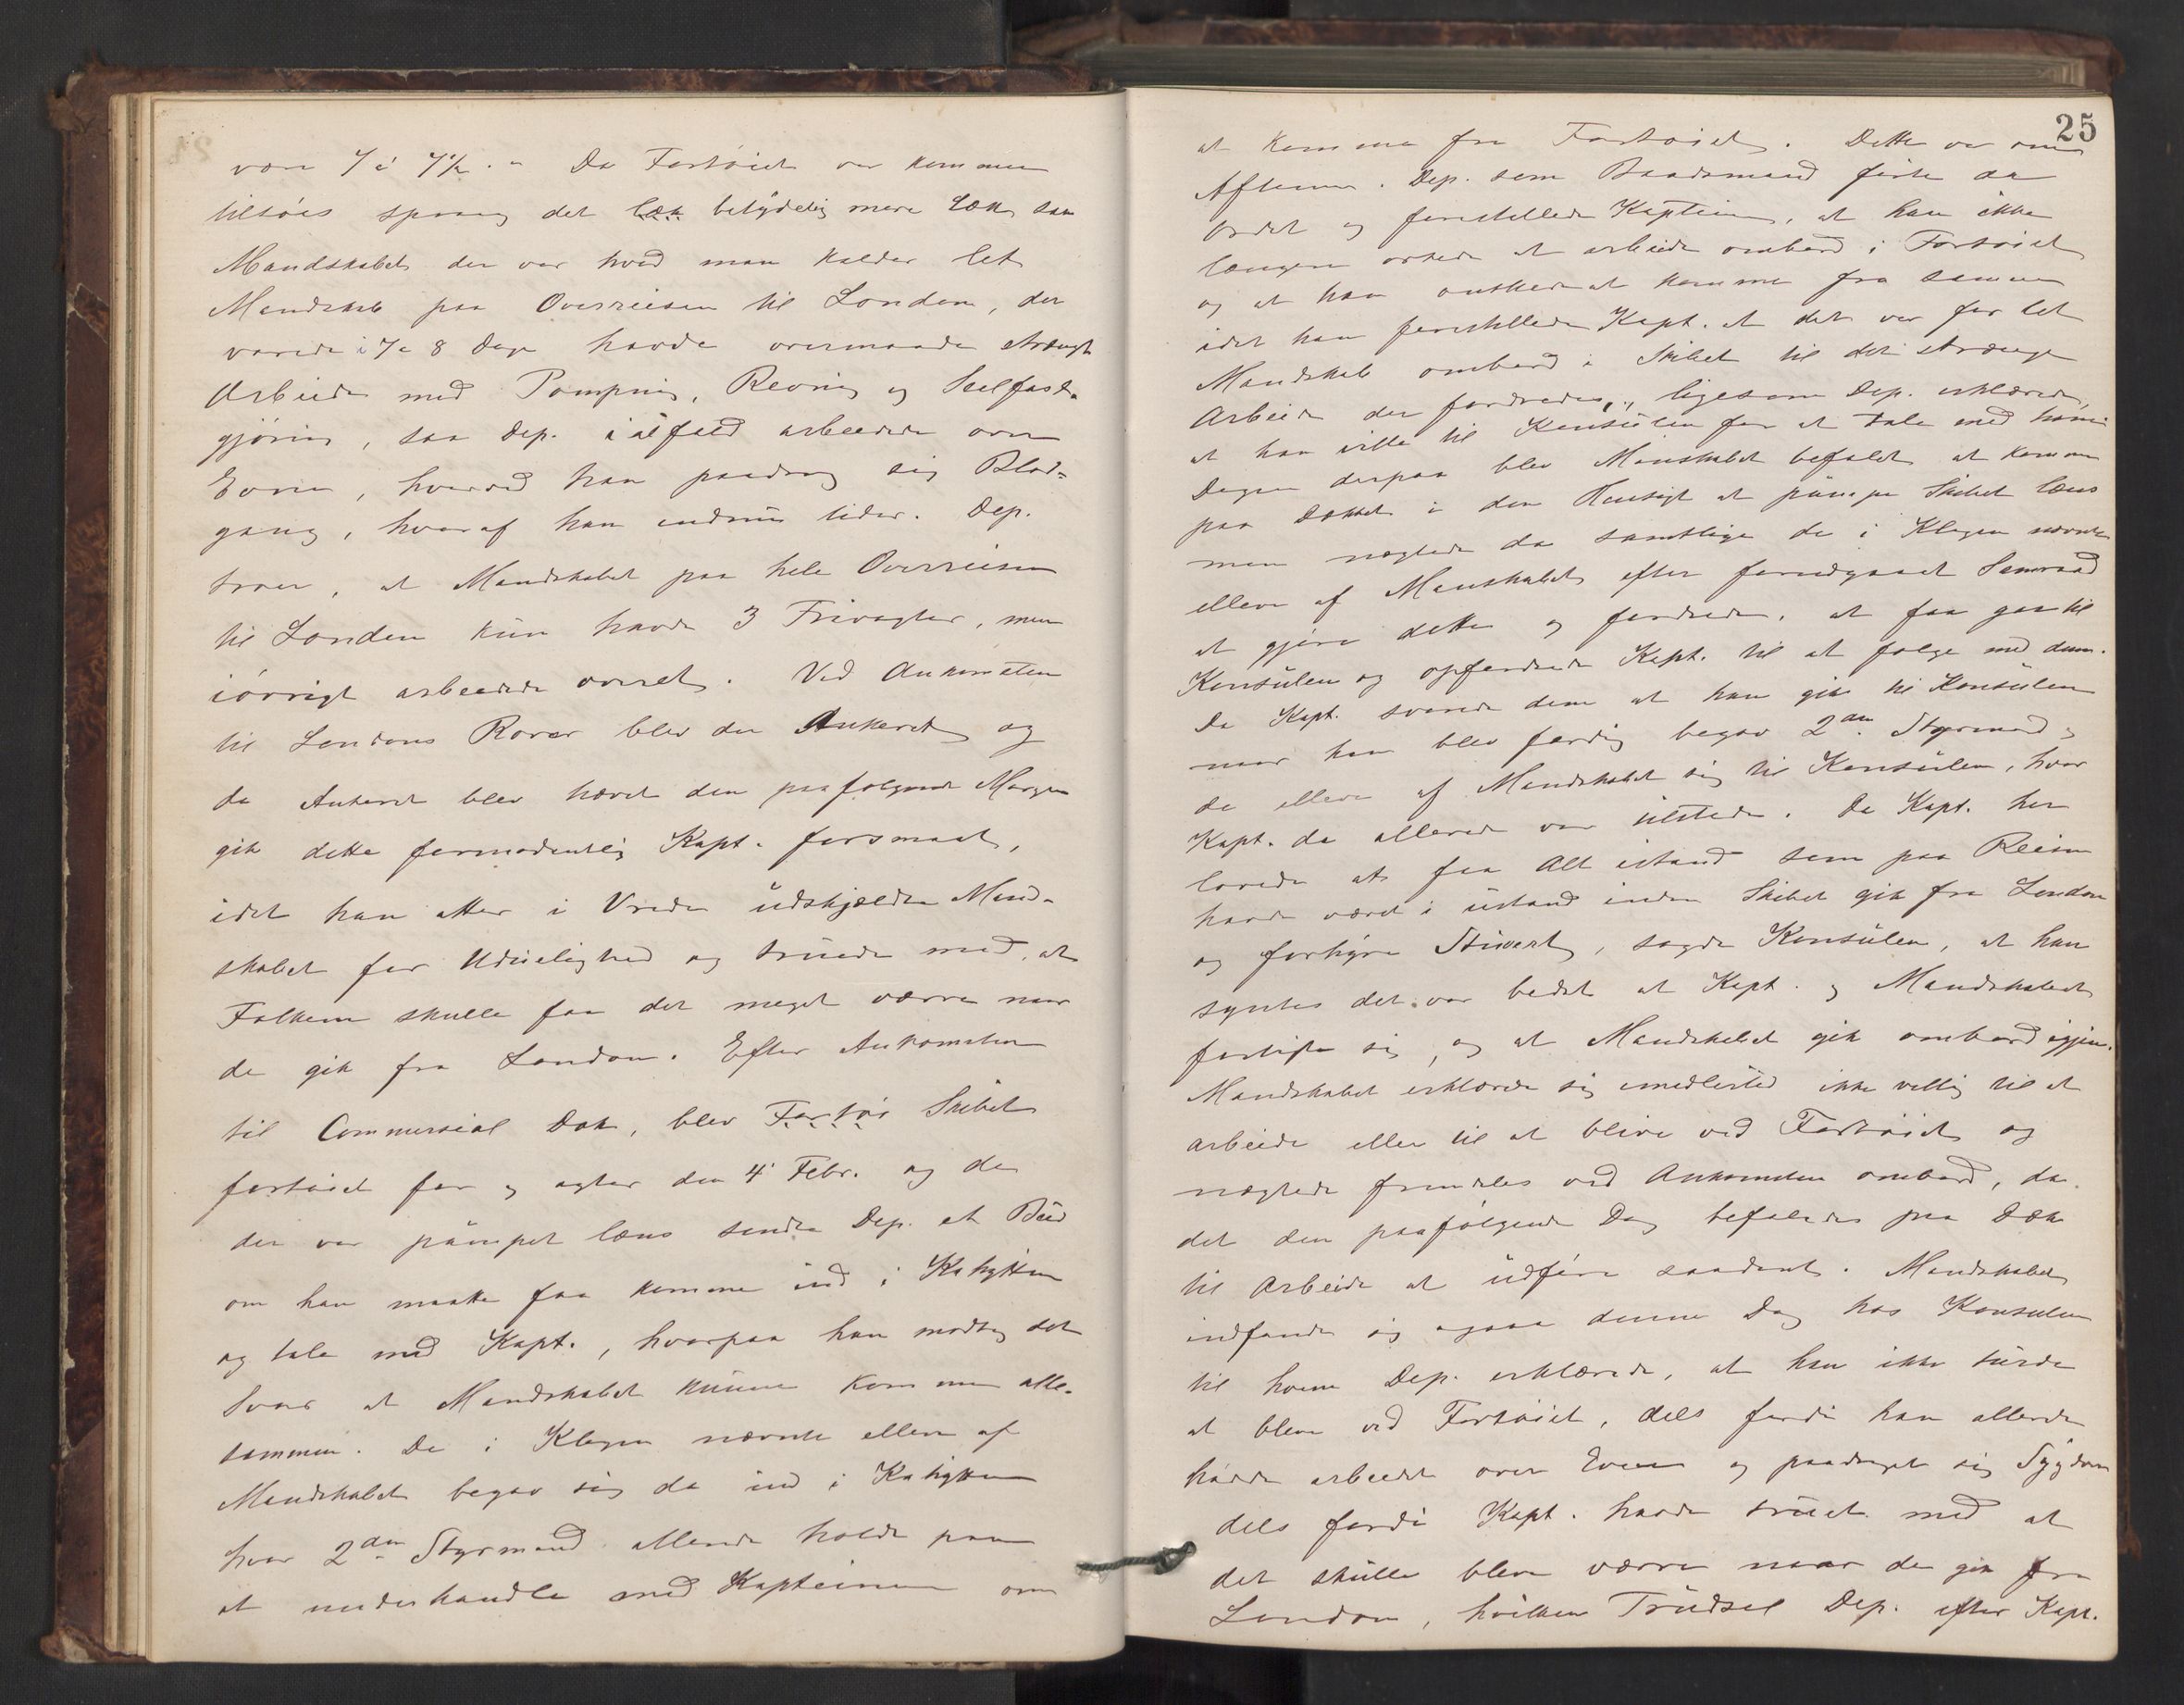 være 7 à 7½. " Da Fartøiet var kommen
tilsøes sprang det læk betydelig mere Læk, saa
Mandskabet der var hvad man kalder let
Mandskab paa Overreisen til London, der
varede i 7 a 8 Dage havde overmaade strængt
Arbeide med Pompning, Revning og Seilfast-
gjøring, saa Dep. i alfald arbeidede over
Evne, hvorved han paadrog sig Blod=
gang, hvoraf han endnu lider. Dep.
troer, at Mandskabet paa hele Overreisen
til London kun havde 3 Frivagter, men
iøvrigt arbeidede overet. Ved Ankomsten
til Londons River blev der Ankeret og
da Ankeret blev hævet den paafølgende Morgen
gik dette formodentlig Kapt. forsmaat,
idet han atter i Vrede udskjældte Mand-
skabet for Uduelighed og truede med, at
Folkene skulle faa det meget værre naar
de gik fra London. Efter Ankomsten
til Commersial Dok, blev Fartøi Skibet
fortøiet for og agter den 4' Febr. og da
der var pumpet læns sendte Dep. et Bud
om han maatte faa komme ind i Kahytten
og tale med Kapt., hvorpaa han modtog det
Svar at Mandskabet kunne komme alle-
sammen. De i Klagen nævnte elleve af
Mandskabet begav sig da ind i Kahytten
hvor 2den Styrmand allerede holdt paa
at underhandle med Kapteinen om
25
at komme fra Fartøiet. Dette var om
Aftenen. Dep. som Baadsmand førte da
Ordet og forestillede Kapteinen, at han ikke
længere orkede at arbeide ombord i Fartøiet
og at han ønskede at komme fra samme
idet han forestillede Kapt. at det var for let
Mandskab ombord i Skibet til det strænge
Arbeide der fordredes, ligesom Dep. erklærede,
at han vilde til Konsulen for at tale med ham.
Dagen derpaa blev Manskabet befalet at komme
paa Dækket i den Hensigt at pumpe Skibet læns
men nægtede da samtlige de i Klagen nævnte
elleve af Manskabet efter forudgaaet Samraad
at gjøre dette og fordrede, at faa gaa til
Konsulen og opfordrede Kapt. til at følge med dem.
Da Kapt. svarede dem at han gik til Konsulen
naar han blev færdig begav 2den Styrmand og
de elleve af Mandskabet sig til Konsulen, hvor
Kapt. da allerede var tilstede. Da Kapt. her
lovede at faa Alt istand som paa Reisen
havde været i ustand inden Skibet gik fra London
og forhyre Stuvert, sagde Konsulen, at han
syntes det var bedst at Kapt. og Mandskabet
forligte sig, og at Mandskabet gik ombord igjen.
Mandskabet erklærede sig imidlertid ikke villig til at
arbeide eller til at blive ved Fartøiet og
nægtede fremdeles ved Ankomsten ombord, da
det den paafølgende Dag befaledes paa Dæk
til Arbeide at udføre saadant. Mandskabet
indfandt sig ogsaa denne Dag hos Konsulen
til hvem Dep. erklærede, at han ikke turde
at blive ved Fartøiet, dels fordi han allerede
havde arbeidet over Evne og paadraget sig Sygdom
dels fordi Kapt. havde truet med at
det skulle blive værre naar de gik fra
London, hvilken Trudsel Dep. efter Kapt.